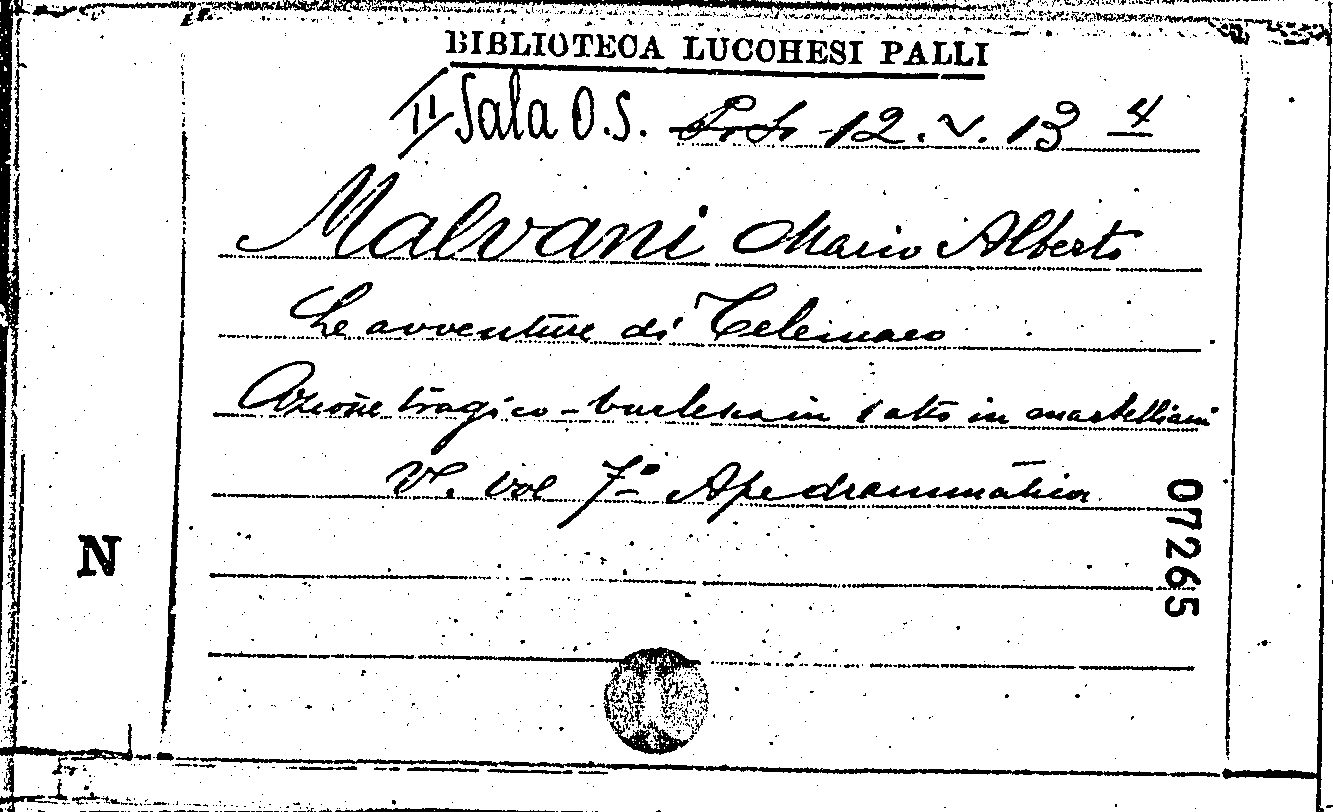 BIBLIOTECA LUCCHESI PALLI
II Sala O.S. 12. V. 13 4
Malvani Mario Alberto
Le avventure di Telemaco
Azione tragico-burlesca in 1 atto in martelliani
V. vol 7º Ape drammatica
07265
N